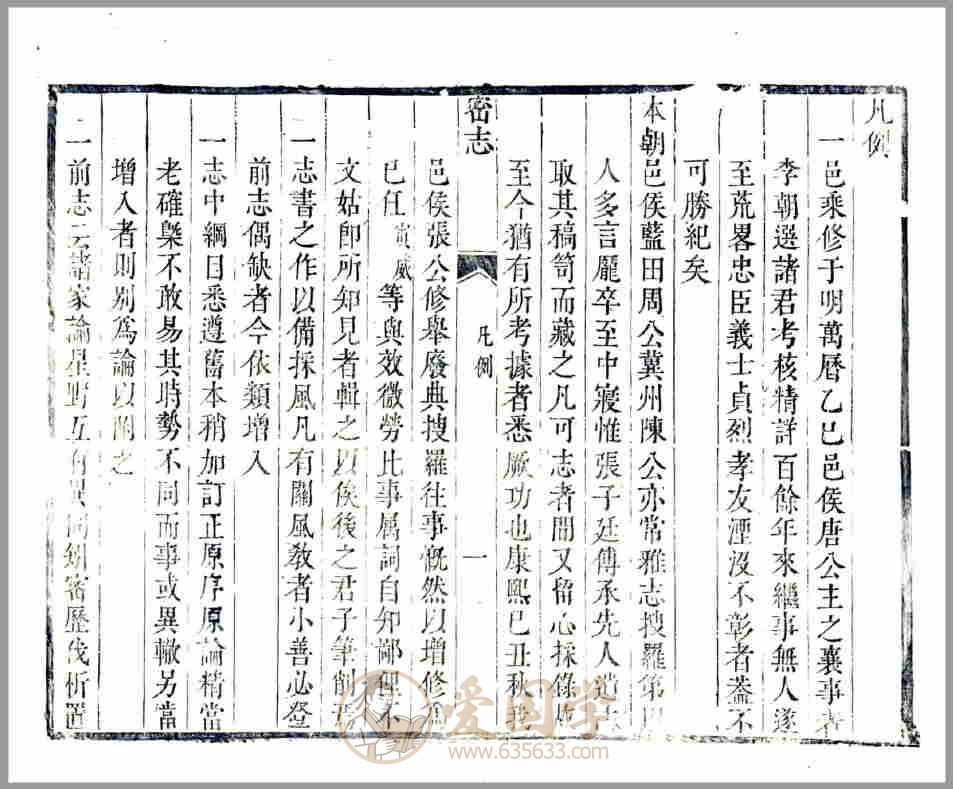 凡例
一邑乘修于明萬曆乙巳邑侯唐公主之襄事者
李朝選諸君考核精詳百餘年來繼事無人遂
至荒畧忠臣義士貞烈孝友湮沒不彰者葢不
可勝紀矣
本朝邑侯藍田周公冀州陳公亦常雅志搜羅第
人多言龐卒至中寢惟張子廷傅承先人遺
取其稿笥而藏之凡可志者間又留心採錄
至今猶有所考據者悉厥功也康熙己丑秋我
密志
凡例
一
邑侯張公修舉廢典搜羅往事慨然以增修爲
己任寅威等與效微勞比事属詞自知鄙俚不
文姑卽所知見者輯之以俟後之君子筆削焉
一志書之作以備採風凡有關風敎者小善必登
前志偶缺者今依類增入
一志中綱目悉遵舊本稍加訂正原序原論精當
老確槩不敢易其時勢不同而事或異轍另當
增入者則别爲論以闡之
一前志云諸家論星野互有異同剏密歷伐析置
爱国学
www.635633.com